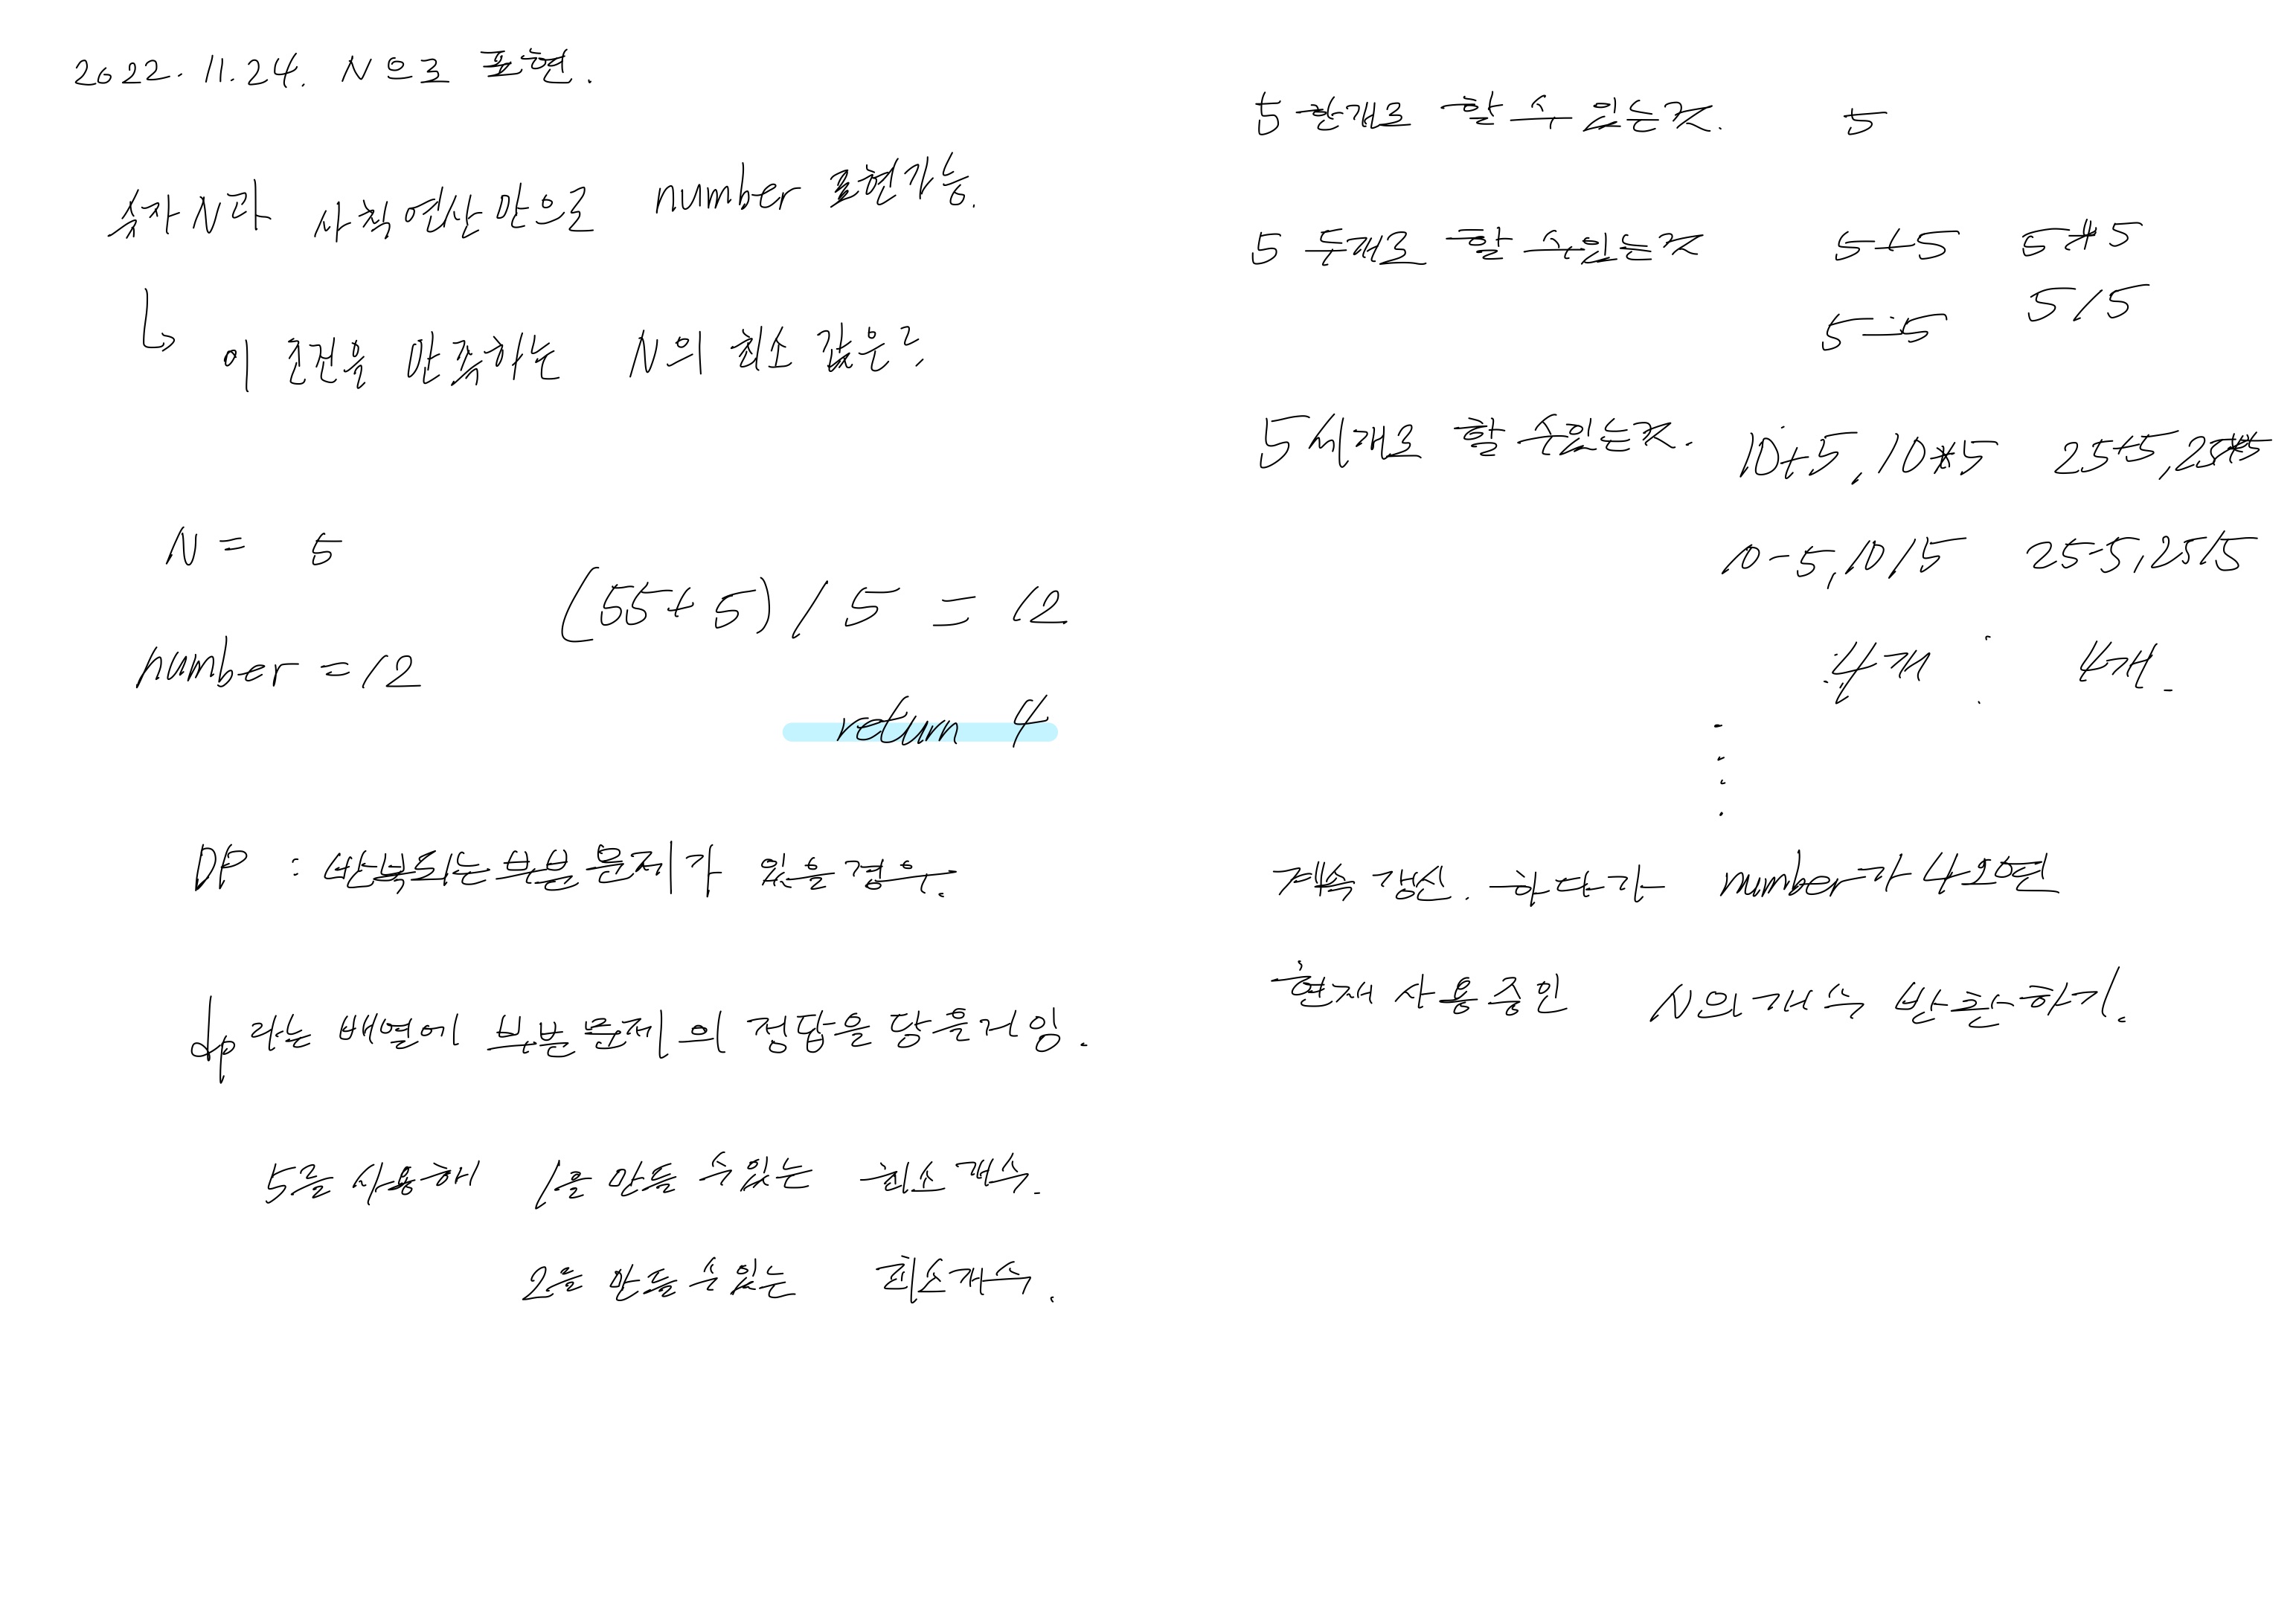 2022. 11.24. N으로 표현.
숫자 N과 사칙연산 만으로 number 표현가능.
↳ 이 조건을 만족하는 N의 최소 값은?
N = 5
(55+5)/5 = 12
number = 12
return 4
DP : 반복되는 부분문제가 있을경우.
dp라는 배열에 부분문제의 정답을 담을거임.
5를 사용해 1을 만들 수있는 최소개수.
2를 만들 수있는 최소개수.
5 한개로 할 수 있는것. 5
5 두개로 할 수있는것 5+5 5*5
5-5 5/5
5 세개로 할 수있는것. 10+5, 10*5 25+5, 25*5
10-5, 10/5 25-5, 25/5
4개 : 4개.
계속 갱신. 하다가 number가 나오면
현재 사용 중인 N의 개수 반환하기.